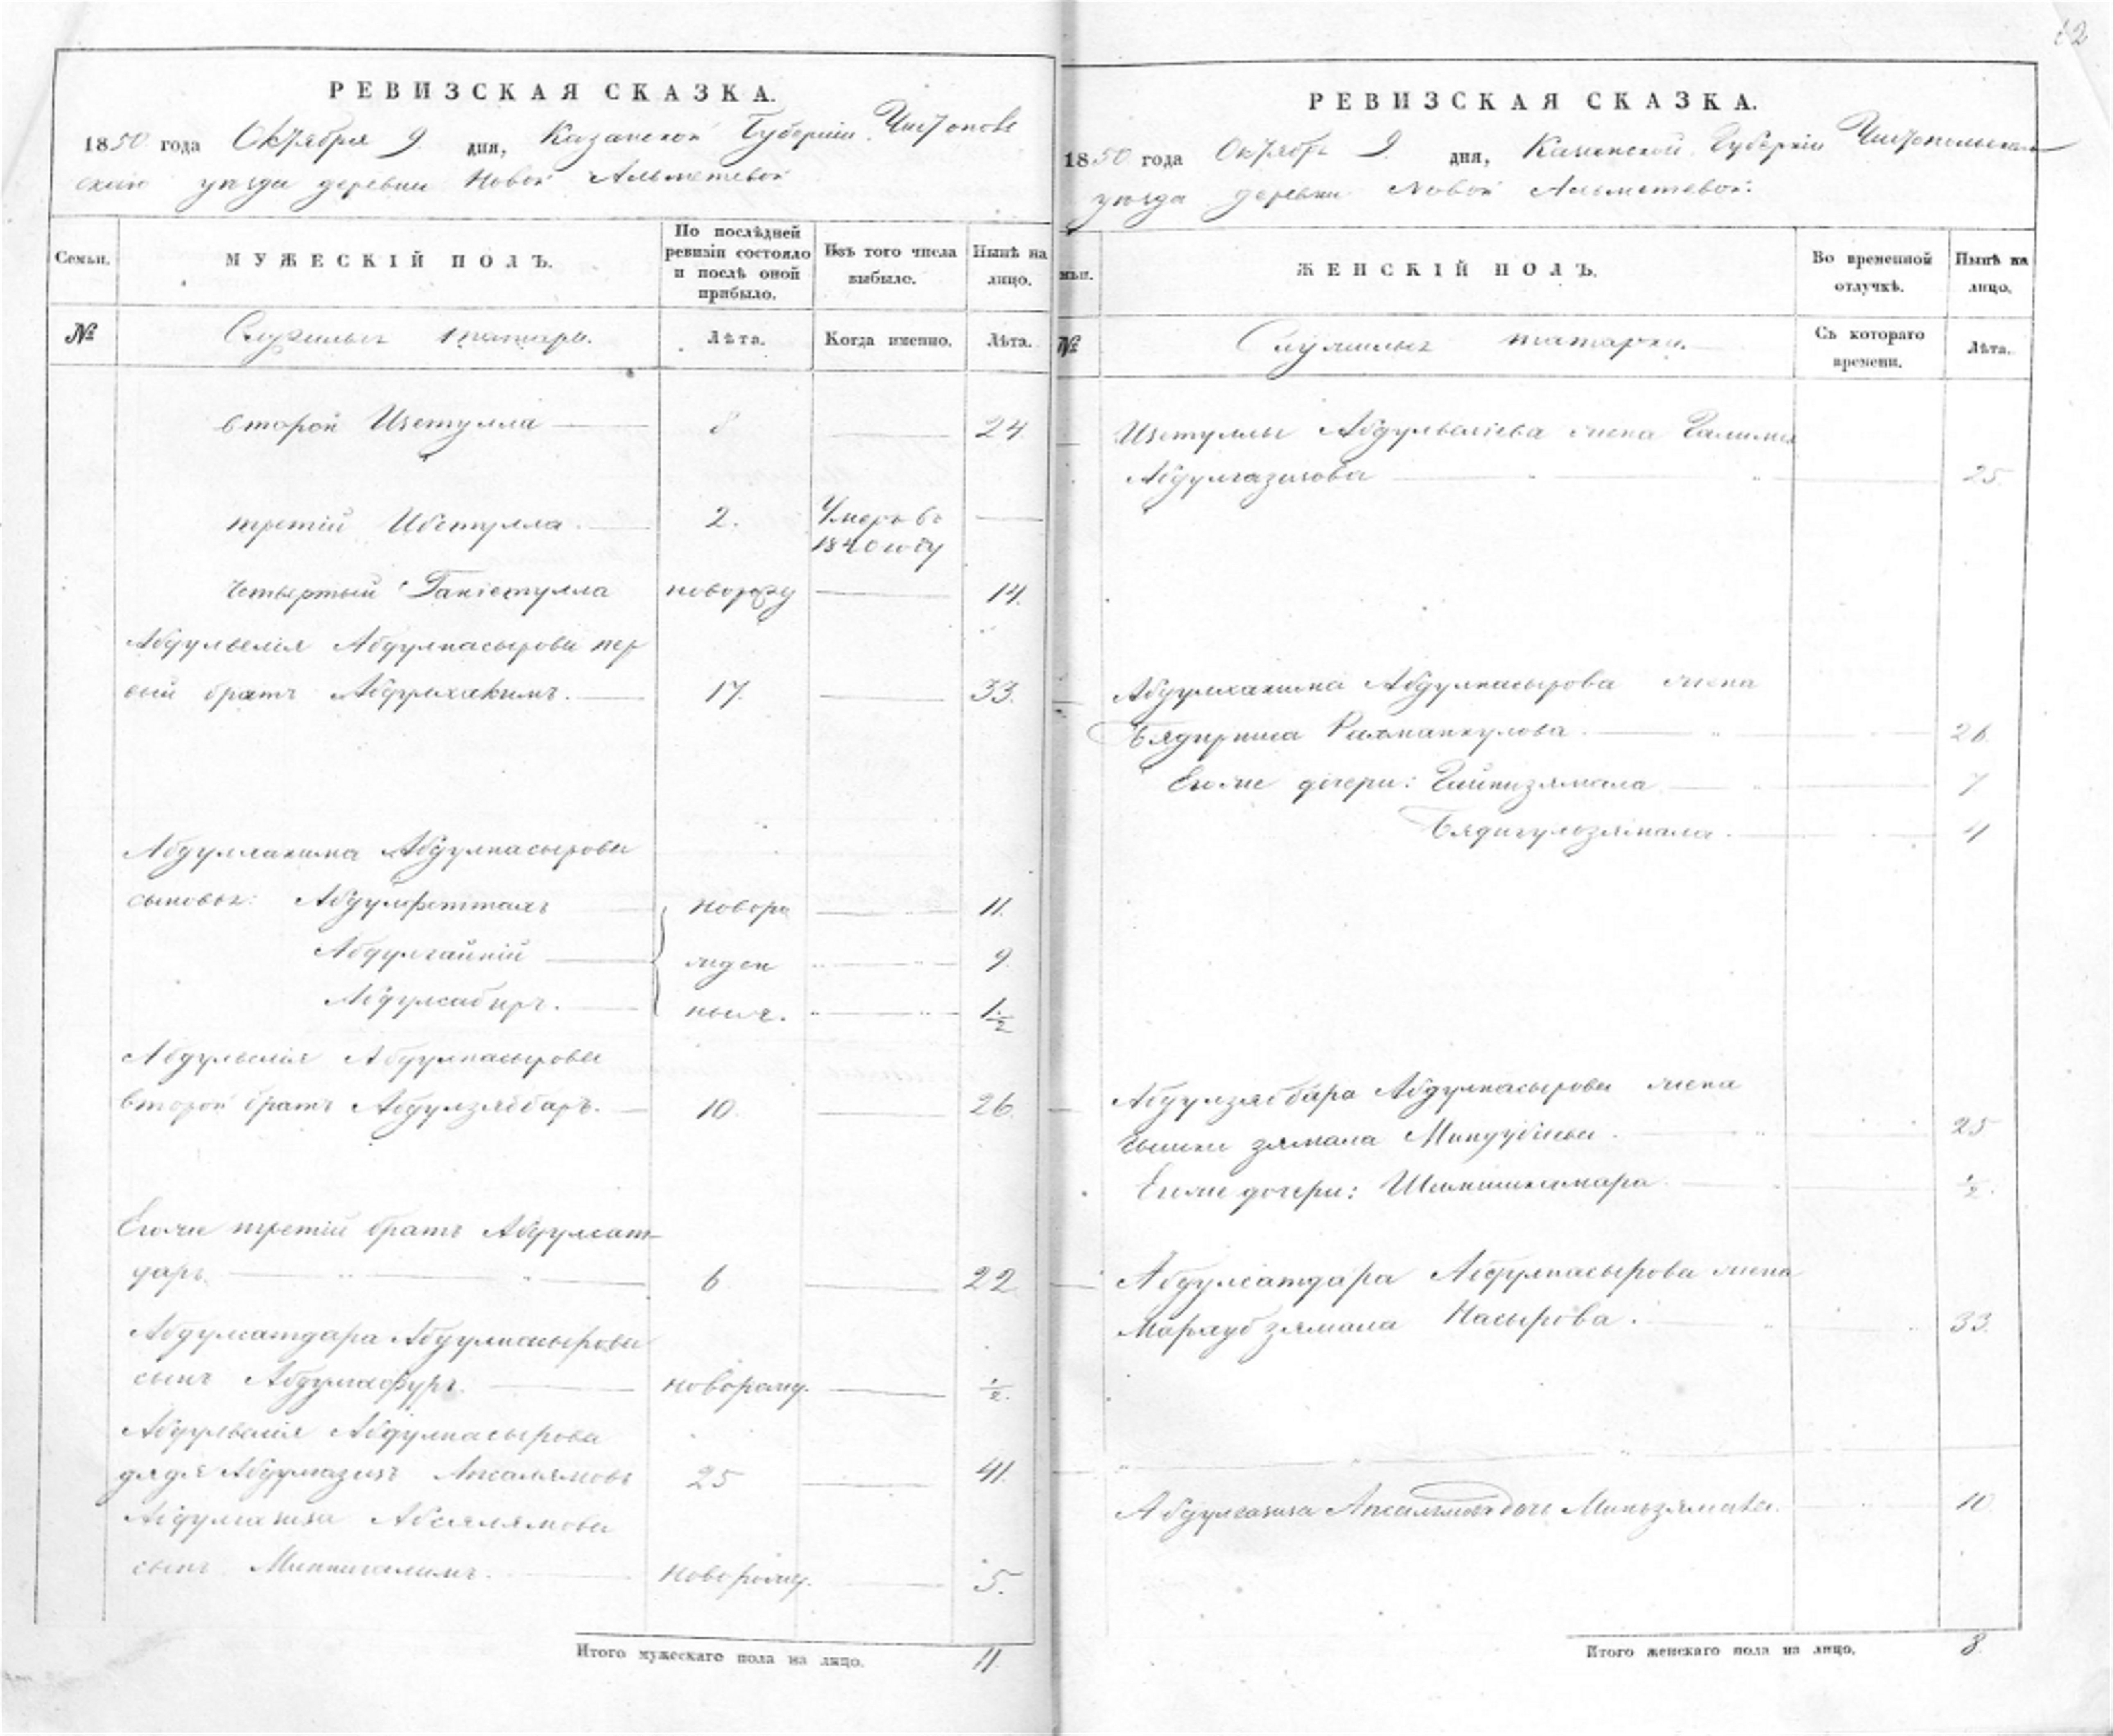 62
РЕВИЗСКАЯ СКАЗКА.
1850 года Октября 9 дня, Казанской Губернiи Чистополь
скаго уезда деревни Новой Альметевой
Семьи.
МУЖЕСКIЙ ПОЛЪ.
По послѣдней ревизiи состояло и послѣ оной прибыло.
Изъ того числа выбыло.
Нынѣ на лицо.
№
Служилыхъ татаръ.
Лѣта.
Когда именно.
Лѣта.
второй Изетулла 8 24.
третiй Ибетулла 2. Умеръ въ
1840 году
четвертый Ганiетулла новорожд 14.
Абдулвелiя Абдулнасырова пер
вый братъ Абдулхакимъ. 17. 33.
Абдулхакима Абдулнасырова
сыновья: Абдулфеттахъ новоро 11.
Абдулгайнiй жден 9.
Абдулсабиръ. ныхъ. 1 1/2
Абдулвелiя Абдулнасырова
второй братъ Абдулзяббаръ. 10. 26.
Егоже третiй братъ Абдулсат-
даръ 6 22
Абдулсатдара Абдулнасырова
сынъ Абдулгафуръ. новорожд. 1/2.
Абдулвелiя Абдулнасырова
дядя Абдулгазизъ Апсалямовъ 25 41.
Абдулгазиза Абсалямова
сынъ Миннигалимъ. новорожд. 5.
Итого мужескаго пола на лицо. 11.
РЕВИЗСКАЯ СКАЗКА.
1850 года Октябрь 9. дня, Казанской Губернiи Чистопольскаго
уезда деревни Новой Альметевой.
ЖЕНСКIЙ ПОЛЪ.
Во временной отлучкѣ.
Нынѣ на лицо.
№
Служилыхъ татарки.
Съ котораго времени.
Лѣта.
Изетуллы Абдулвелiева жена Галима
Абдулгазизова 25.
Абдулхакима Абдулнасырова жена
Бядерниса Рахманкулова. 26
Егоже дочери: Гайнизямала 7
Бядигульзямала. 4
Абдулзяббара Абдулнасырова жена
зямала 25
Егоже дочери: Шамшикамара 1/2.
Абдулсатдара Абдулнасырова жена
Мархубзямала Насырова. 33.
Абдулгазиза Апсалямова дочь Миньзямала. 10
Итого женскаго пола на лицо. 8.